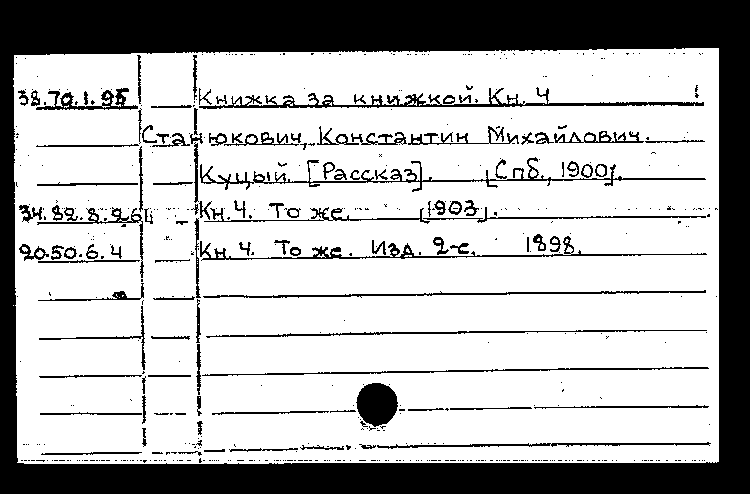 38.70.1.95 Книжка за книжкой. Кн. 4 1
Станюкович, Константин Михайлович.
Куцый. [Рассказ]. [Спб., 1900].
34.82.8.26 Кн. 4. То же. [1903].
20.50.6.4 Кн. 4. То же. Изд. 2-е. 1898.